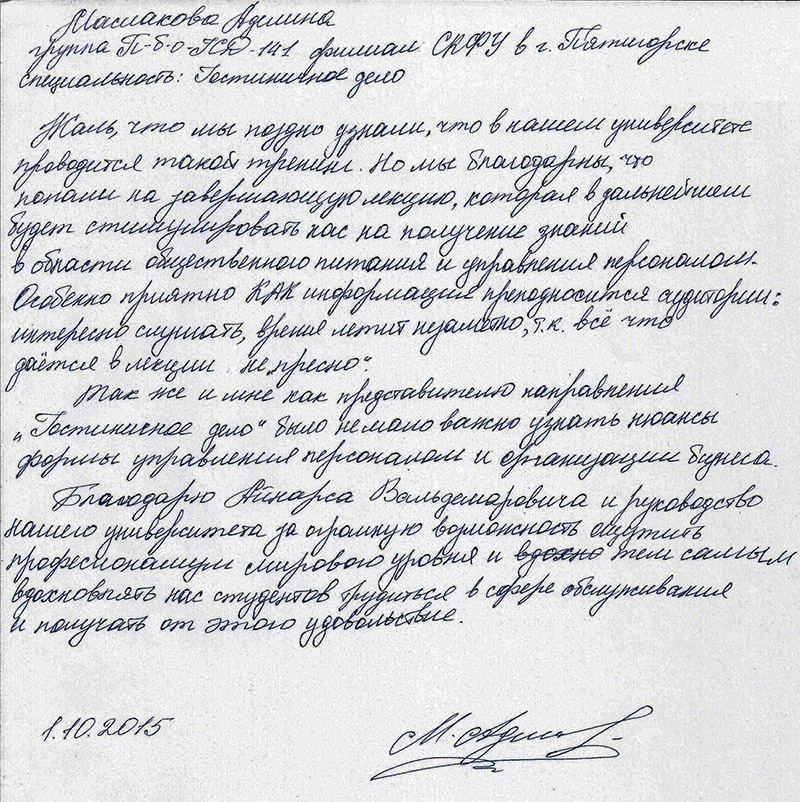 Маслакова Аделина
группа П-б-о-ГСД-141 филиал СКФУ в г. Пятигорске
специальность: Гостиничное дело
Жаль, что мы поздно узнали, что в нашем университете
проводится такой тренинг. Но мы благодарны, что
попали на завершающую лекцию, которая в дальнейшем
будет стимулировать нас на получение знаний
в области общественного питания и управления персоналом.
Особенно приятно КАК информация преподносится аудитории:
интересно слушать, время летит незаметно, т.к. всё что
даётся в лекции не „пресно“.
Так же и мне как представителю направления
„Гостиничное дело“ было немало важно узнать нюансы
формы управления персоналом и организации бизнеса.
Благодарю Айнарса Вальдемаровича и руководство
нашего университета за огромную возможность ощутить
професионализм мирового уровня и вдохно тем самым
вдохновлять нас студентов трудиться в сфере обслуживания
и получать от этого удовольствие.
1.10.2015